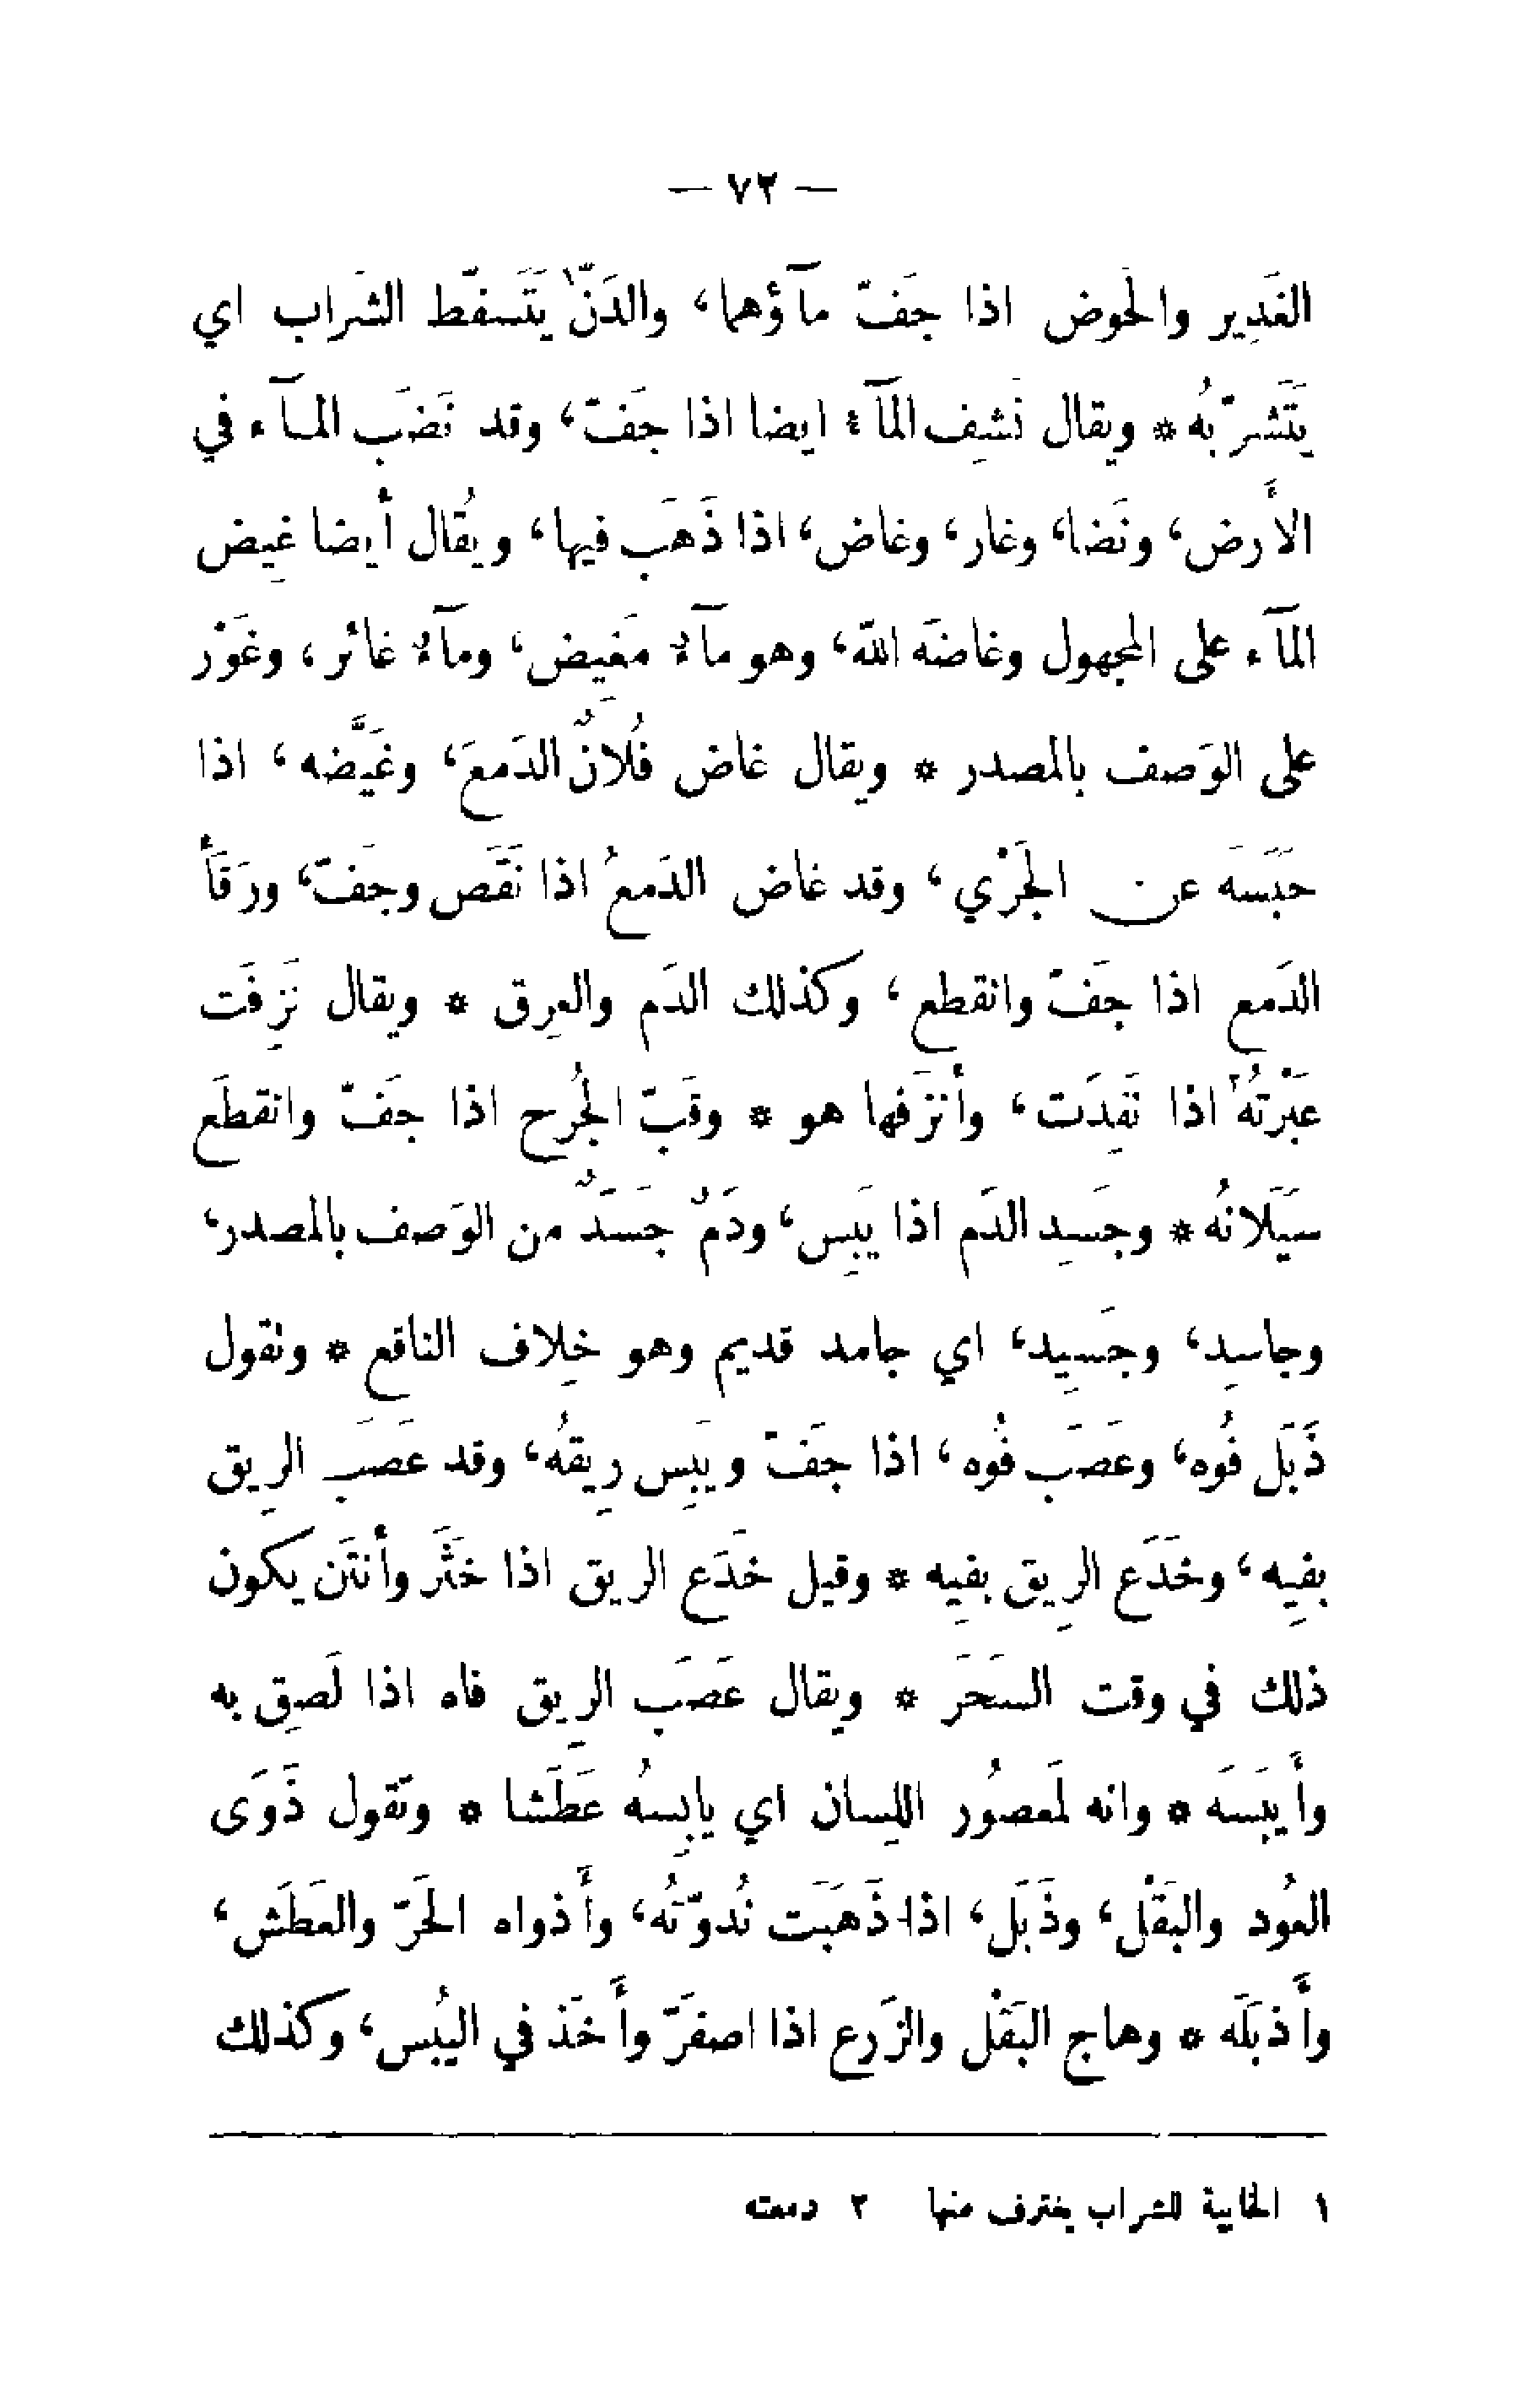 — ٧٢ —
الغَدِير والحَوض اذا جَفّ مآؤهما، والدَنّ١ يَتَسفّط الشَراب اي
يَتَشرّبُه * ويقال نَشِف المآءُ ايضا اذا جَفّ، وقد نَضَب المآء في
الأَرض، ونَضا، وغار، وغاض، اذا ذَهَب فيها، ويُقال أيضا غِيض
المآء على المجهول وغاضَه الله، وهو مآءٌ مَغِيض، ومآءٌ غائر، وغَوْر
على الوَصف بالمصدر * ويقال غاض فُلانٌ الدَمعَ، وغَيَّضه، اذا
حَبَسَه عن الجَرْي، وقد غاض الدَمعُ اذا نَقَص وجَفّ، ورَقَأَ
الدَمع اذا جَفّ وانقطع، وكذلك الدَم والعِرق * ويقال نَزِفَت
عَبْرَتُهُ٢ اذا نَفِدَت، وأنزَفها هو * وقَبّ الجُرح اذا جَفّ وانقطَع
سَيَلانُه * وجَسِد الدَم اذا يَبِس، ودَمٌ جَسَدٌ من الوَصف بالمصدر،
وجاسِد، وجَسِيد، اي جامد قديم وهو خِلاف الناقع * ونقول
ذَبَل فُوه، وعَصَب فُوه، اذا جَفّ ويَبِس رِيقُه، وقد عَصَب الرِيق
بفِيه، وخَدَع الرِيق بفِيه * وقيل خَدَع الريق اذا خَثَر وأنتَن يكون
ذلك في وقت السَحَر * ويقال عَصَب الرِيق فاه اذا لَصِق به
وأَيبَسَه * وانه لَمعصُور اللِسان اي يابِسُه عَطَشا * وتَقول ذَوَى
العُود والبَقْل، وذَبَل، اذا ذَهَبَت نُدوّتُه، وأَذواه الحَرّ والعَطَش،
وأَذبَلَه * وهاج البَقْل والزَرع اذا اصفَرّ وأَخَذ في اليُبس، وكذلك
١ الخابية للشراب يغترف منها ٢ دمعته